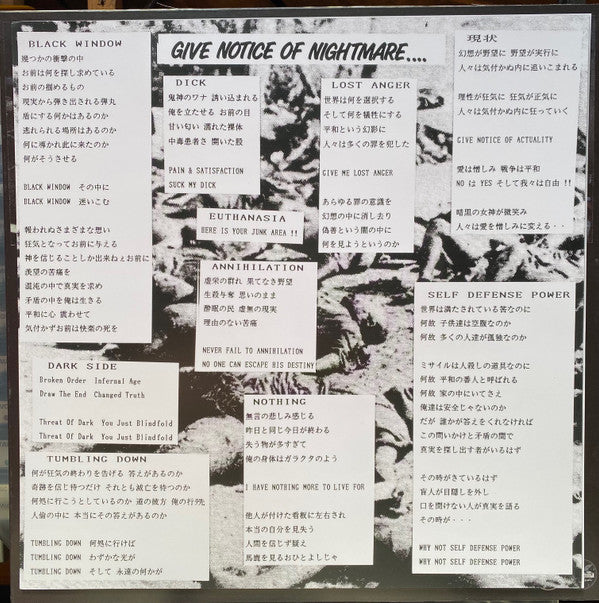 GIVE NOTICE OF NIGHTMARE....
BLACK WINDOW
幾つかの衝撃の中
お前は何を探し求めている
お前の掴めるもの
現実から弾き出される弾丸
盾にする何かはあるのか
逃れられる場所はあるのか
何に導かれ此に来たのか
何がそうさせる
BLACK WINDOW その中に
BLACK WINDOW 迷いこむ
報われぬさまざまな想い
狂気となってお前に与える
神を信じることしか出来ねぇお前に
羨望の苦痛を
混沌の中で真実を求め
矛盾の中を俺は生きる
平和に心 震わせて
気付かずお前は快楽の死を
DARK SIDE
Broken Order Infernal Age
Draw The End Changed Truth
Threat Of Dark You Just Blindfold
Threat Of Dark You Just Blindfold
TUMBLING DOWN
何が狂気の終わりを告げる 答えがあるのか
奇跡を信じ待つだけ それとも滅亡を待つのか
何処に行こうとしているのか 道の彼方 俺の行う先
人倫の中に 本当にその答えがあるのか
TUMBLING DOWN 何処に行けば
TUMBLING DOWN わずかな光が
TUMBLING DOWN そして 永遠の何かが
DICK
鬼神のワナ 誘い込まれる
俺を立たせる お前の目
甘い匂い 濡れた裸体
中毒患者さ 開いた股
PAIN & SATISFACTION
SUCK MY DICK
EUTHANASIA
HERE IS YOUR JUNK AREA !!
ANNIHILATION
虚栄の群れ 果てなき野望
生殺与奪 思いのまま
酩酊の民 虚無の現実
理由のない苦痛
NEVER FAIL TO ANNIHILATION
NO ONE CAN ESCAPE HIS DESTINY
NOTHING
無言の悲しみ感じる
昨日と同じ今日が終わる
失う物が多すぎて
俺の身体はガラクタのよう
I HAVE NOTHING MORE TO LIVE FOR
他人が付けた看板に左右され
本当の自分を見失う
人間を信じず疑え
馬鹿を見るおひとよしじゃ
LOST ANGER
世界は何を選択する
そして何を犠牲にする
平和という幻影に
人々は多くの罪を犯した
GIVE ME LOST ANGER
あらゆる罪の意識を
幻想の中に消し去り
偽善という闇の中に
何を見ようというのか
現状
幻想が野望に 野望が実行に
人々は気付かぬ内に追いこまれる
理性が狂気に 狂気が正気に
人々は気付かぬ内に狂っていく
GIVE NOTICE OF ACTUALITY
愛は憎しみ 戦争は平和
NO は YES そして我々は自由 !!
暗黒の女神が微笑み
人々は愛を憎しみに変える・・
SELF DEFENSE POWER
世界は満たされている筈なのに
何故 子供達は空腹なのか
何故 多くの人達が孤独なのか
ミサイルは人殺しの道具なのに
何故 平和の番人と呼ばれる
何故 家の中にいてさえ
俺達は安全じゃないのか
だが 誰かが答えをくれなければ
この問いかけと矛盾の間で
真実を探し出す者がいるはず
その時がきているはず
盲人が目隠しを外し
口を開けない人が真実を語る
その時が・・・
WHY NOT SELF DEFENSE POWER
WHY NOT SELF DEFENSE POWER